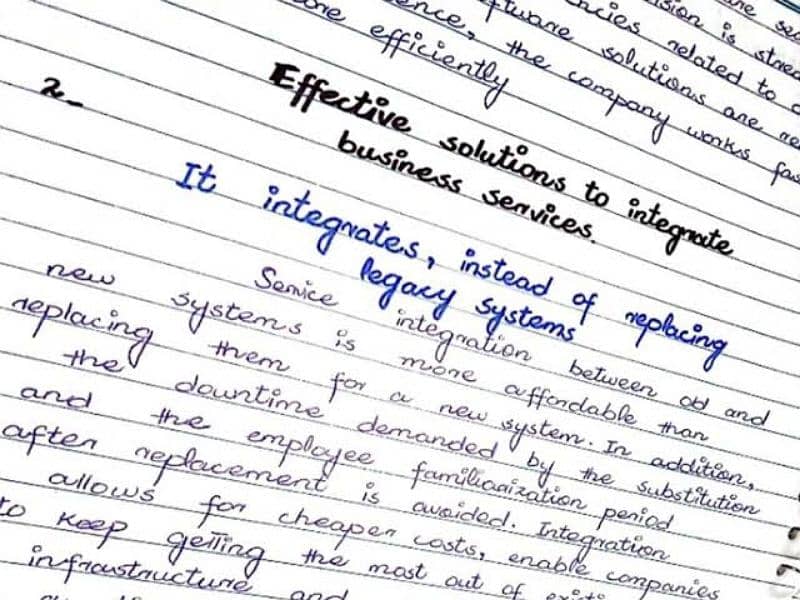 sion is
software solutions are
ence, the company works
efficiently
2-
Effective solutions to integrate
business services.
It integrates, instead of replacing
legacy systems
Service integration between old and
new systems is more affordable than
replacing them for a new system. In addition,
the downtime demanded by the substitution
and the employee familiarization period
after replacement is avoided. Integration
allows for cheaper costs, enable companies
to keep getting the most out of
infraustructure and